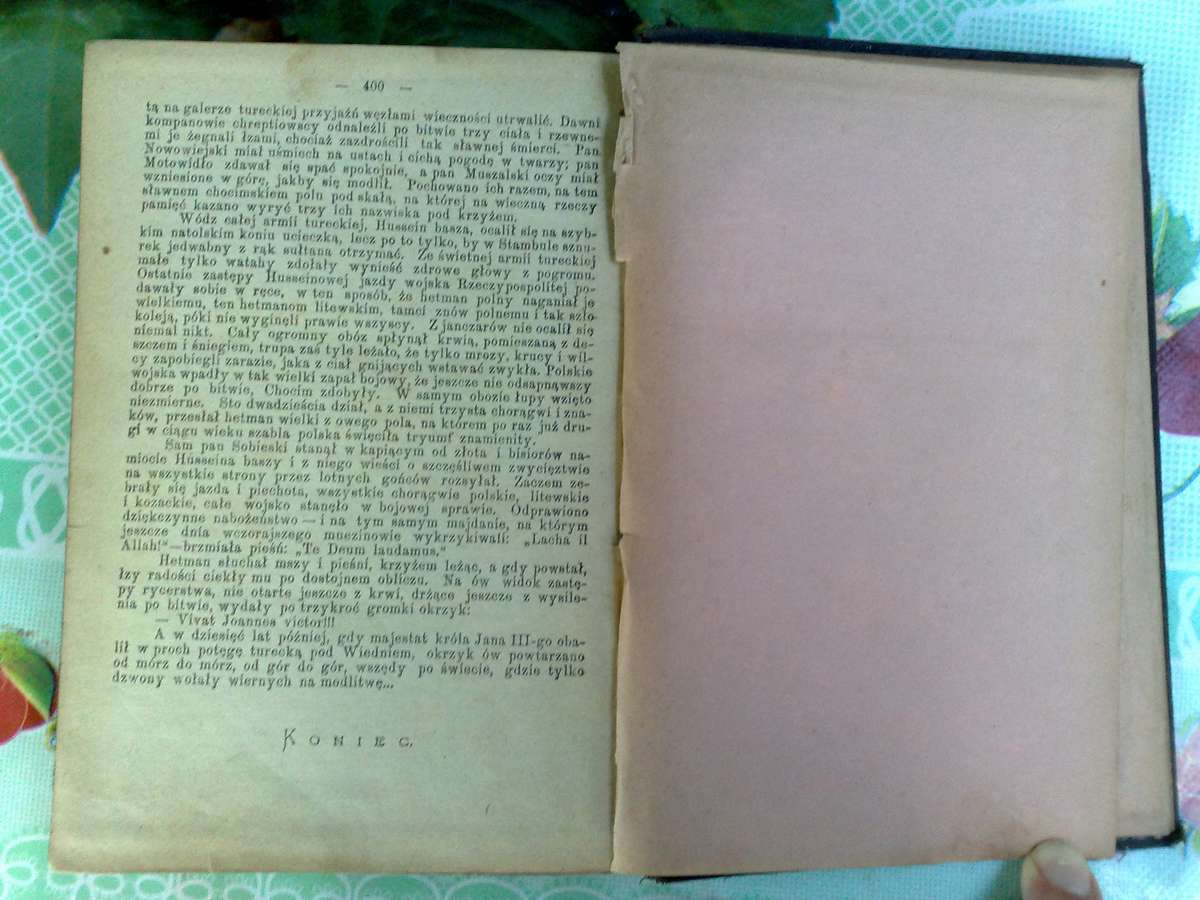 — 400 —
tą na galerze tureckiej przyjaźń węzłami wieczności utrwalić. Dawni
kompanowie chreptiowscy odnaleźli po bitwie trzy ciała i rzewne-
mi je żegnali łzami, chociaż zazdrościli tak sławnej śmierci. Pan
Nowowiejski miał uśmiech na ustach i cichą pogodę w twarzy; pan
Motowidło zdawał się spać spokojnie, a pan Muszalski oczy miał
wzniesione w górę, jakby się modlił. Pochowano ich razem, na tem
sławnem chocimskiem polu pod skałą, na której na wieczną rzeczy
pamięć kazano wyryć trzy ich nazwiska pod krzyżem.
Wódz całej armii tureckiej, Hussein basza, ocalił się na szyb-
kim natolskim koniu ucieczką, lecz po to tylko, by w Stambule sznu-
rek jedwabny z rąk sułtana otrzymać. Ze świetnej armii tureckiej
małe tylko watahy zdołały wynieść zdrowe głowy z pogromu.
Ostatnie zastępy Husseinowej jazdy wojska Rzeczypospolitej po-
dawały sobie w ręce, w ten sposób, że hetman polny naganiał je
wielkiemu, ten hetmanom litewskim, tamci znów polnemu i tak szło
koleją, póki nie wyginęli prawie wszyscy. Z janczarów nie ocalił się
niemal nikt. Cały ogromny obóz spłynął krwią, pomieszaną z de-
szczem i śniegiem, trupa zaś tyle leżało, że tylko mrozy, krucy i wil-
cy zapobiegli zarazie, jaka z ciał gnijących wstawać zwykła. Polskie
wojska wpadły w tak wielki zapał bojowy, że jeszcze nie odsapnąwszy
dobrze po bitwie, Chocim zdobyły. W samym obozie łupy wzięto
niezmierne. Sto dwadzieścia dział, a z niemi trzysta chorągwi i zna-
ków, przesłał hetman wielki z owego pola, na którem po raz już dru-
gi w ciągu wieku szabla polska święciła tryumf znamienity.
Sam pan Sobieski stanął w kapiącym od złota i bisiorów na-
miocie Husseina baszy i z niego wieści o szczęśliwem zwycięztwie
na wszystkie strony przez lotnych gońców rozsyłał. Zaczem ze-
brały się jazda i piechota, wszystkie chorągwie polskie, litewskie
i kozackie, całe wojsko stanęło w bojowej sprawie. Odprawiono
dziękczynne nabożeństwo — i na tym samym majdanie, na którym
jeszcze dnia wczorajszego muezinowie wykrzykiwali: „Lacha il
Allah!“—brzmiała pieśń: „Te Deum laudamus.“
Hetman słuchał mszy i pieśni, krzyżem leżąc, a gdy powstał,
łzy radości ciekły mu po dostojnem obliczu. Na ów widok zastę-
py rycerstwa, nie otarte jeszcze z krwi, drżące jeszcze z wysile-
nia po bitwie, wydały po trzykroć gromki okrzyk:
— Vivat Joannes victor!!!
A w dziesięć lat później, gdy majestat króla Jana III-go oba-
lił w proch potęgę turecką pod Wiedniem, okrzyk ów powtarzano
od mórz do mórz, od gór do gór, wszędy po świecie, gdzie tylko
dzwony wołały wiernych na modlitwę...
KONIEC.